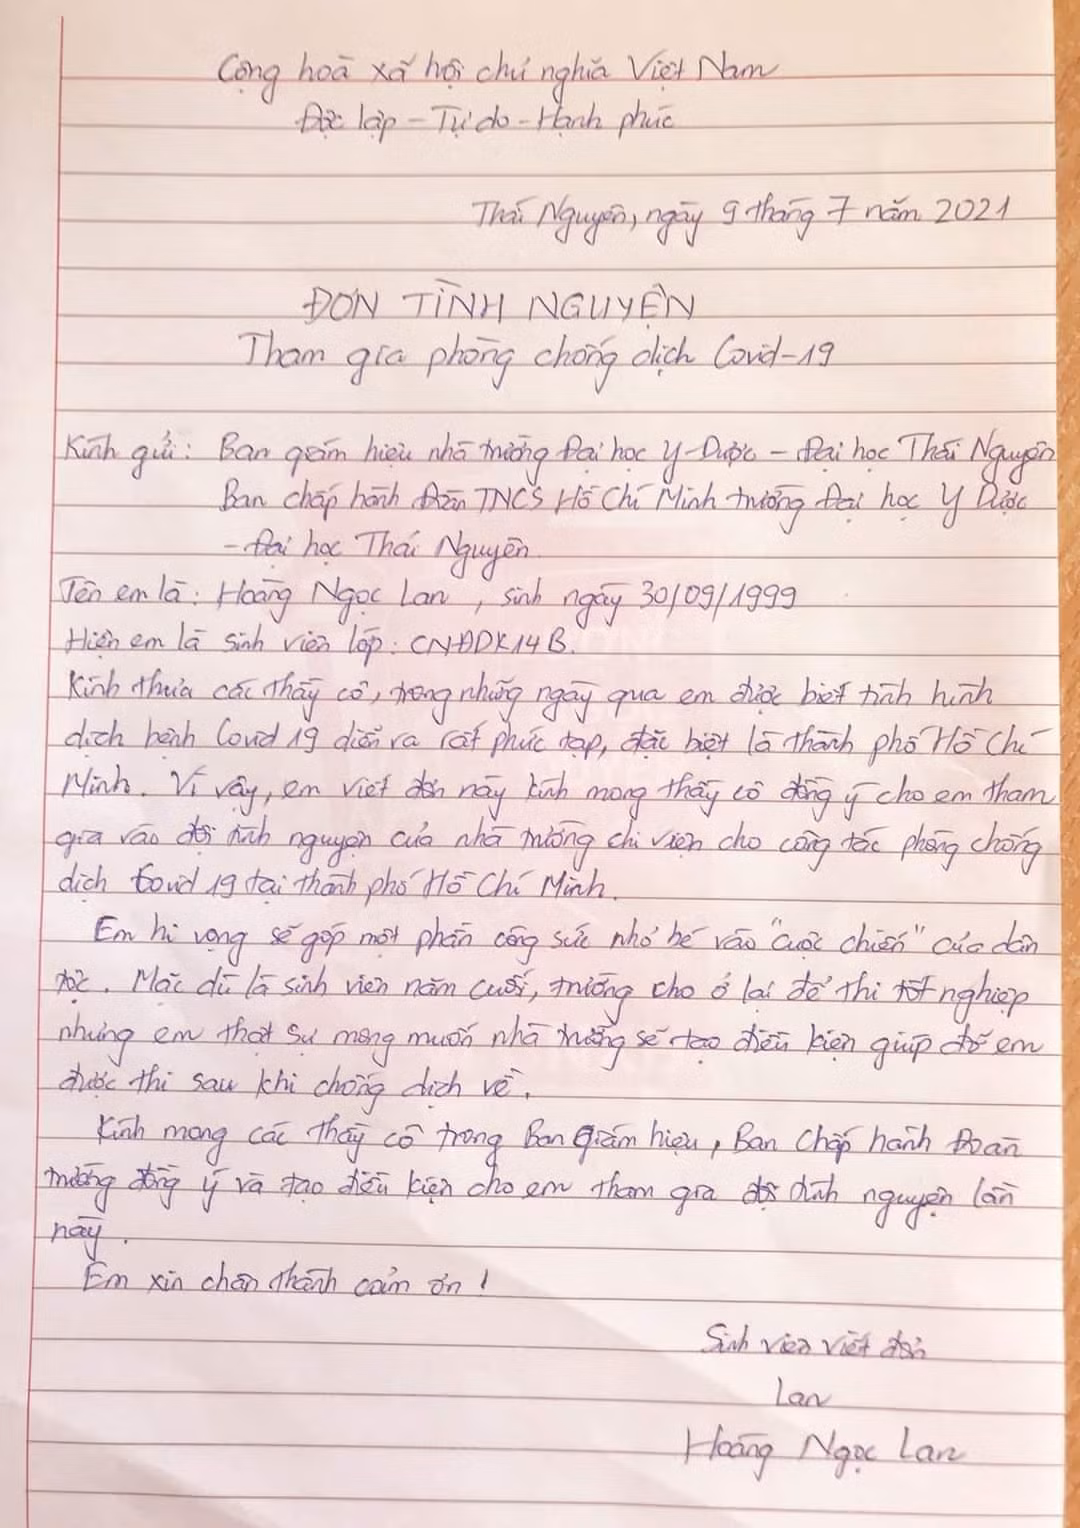 Cộng hoà xã hội chủ nghĩa Việt Nam
Độc lập - Tự do - Hạnh phúc
Thái Nguyên, ngày 9 tháng 7 năm 2021
ĐƠN TÌNH NGUYỆN
Tham gia phòng chống dịch Covid-19
Kính gửi: Ban giám hiệu nhà trường Đại học Y-Dược - Đại học Thái Nguyên
Ban chấp hành Đoàn TNCS Hồ Chí Minh trường Đại học Y Dược
- Đại học Thái Nguyên.
Tên em là: Hoàng Ngọc Lan, sinh ngày 30/09/1999
Hiện em là sinh viên lớp: CNĐDK14B.
Kính thưa các thầy cô, trong những ngày qua em được biết tình hình
dịch bệnh Covid 19 diễn ra rất phức tạp, đặc biệt là thành phố Hồ Chí
Minh. Vì vậy, em viết đơn này kính mong thầy cô đồng ý cho em tham
gia vào đội tình nguyện của nhà trường chi viện cho công tác phòng chống
dịch Covid 19 tại thành phố Hồ Chí Minh.
Em hi vọng sẽ góp một phần công sức nhỏ bé vào "cuộc chiến" của dân
tộc. Mặc dù là sinh viên năm cuối, trường cho ở lại để thi tốt nghiệp
nhưng em thật sự mong muốn nhà trường sẽ tạo điều kiện giúp đỡ em
được thi sau khi chống dịch về.
Kính mong các thầy cô trong Ban giám hiệu, Ban chấp hành Đoàn
trường đồng ý và tạo điều kiện cho em tham gia đội tình nguyện lần
này.
Em xin chân thành cảm ơn!
Sinh viên viết đơn
Lan
Hoàng Ngọc Lan